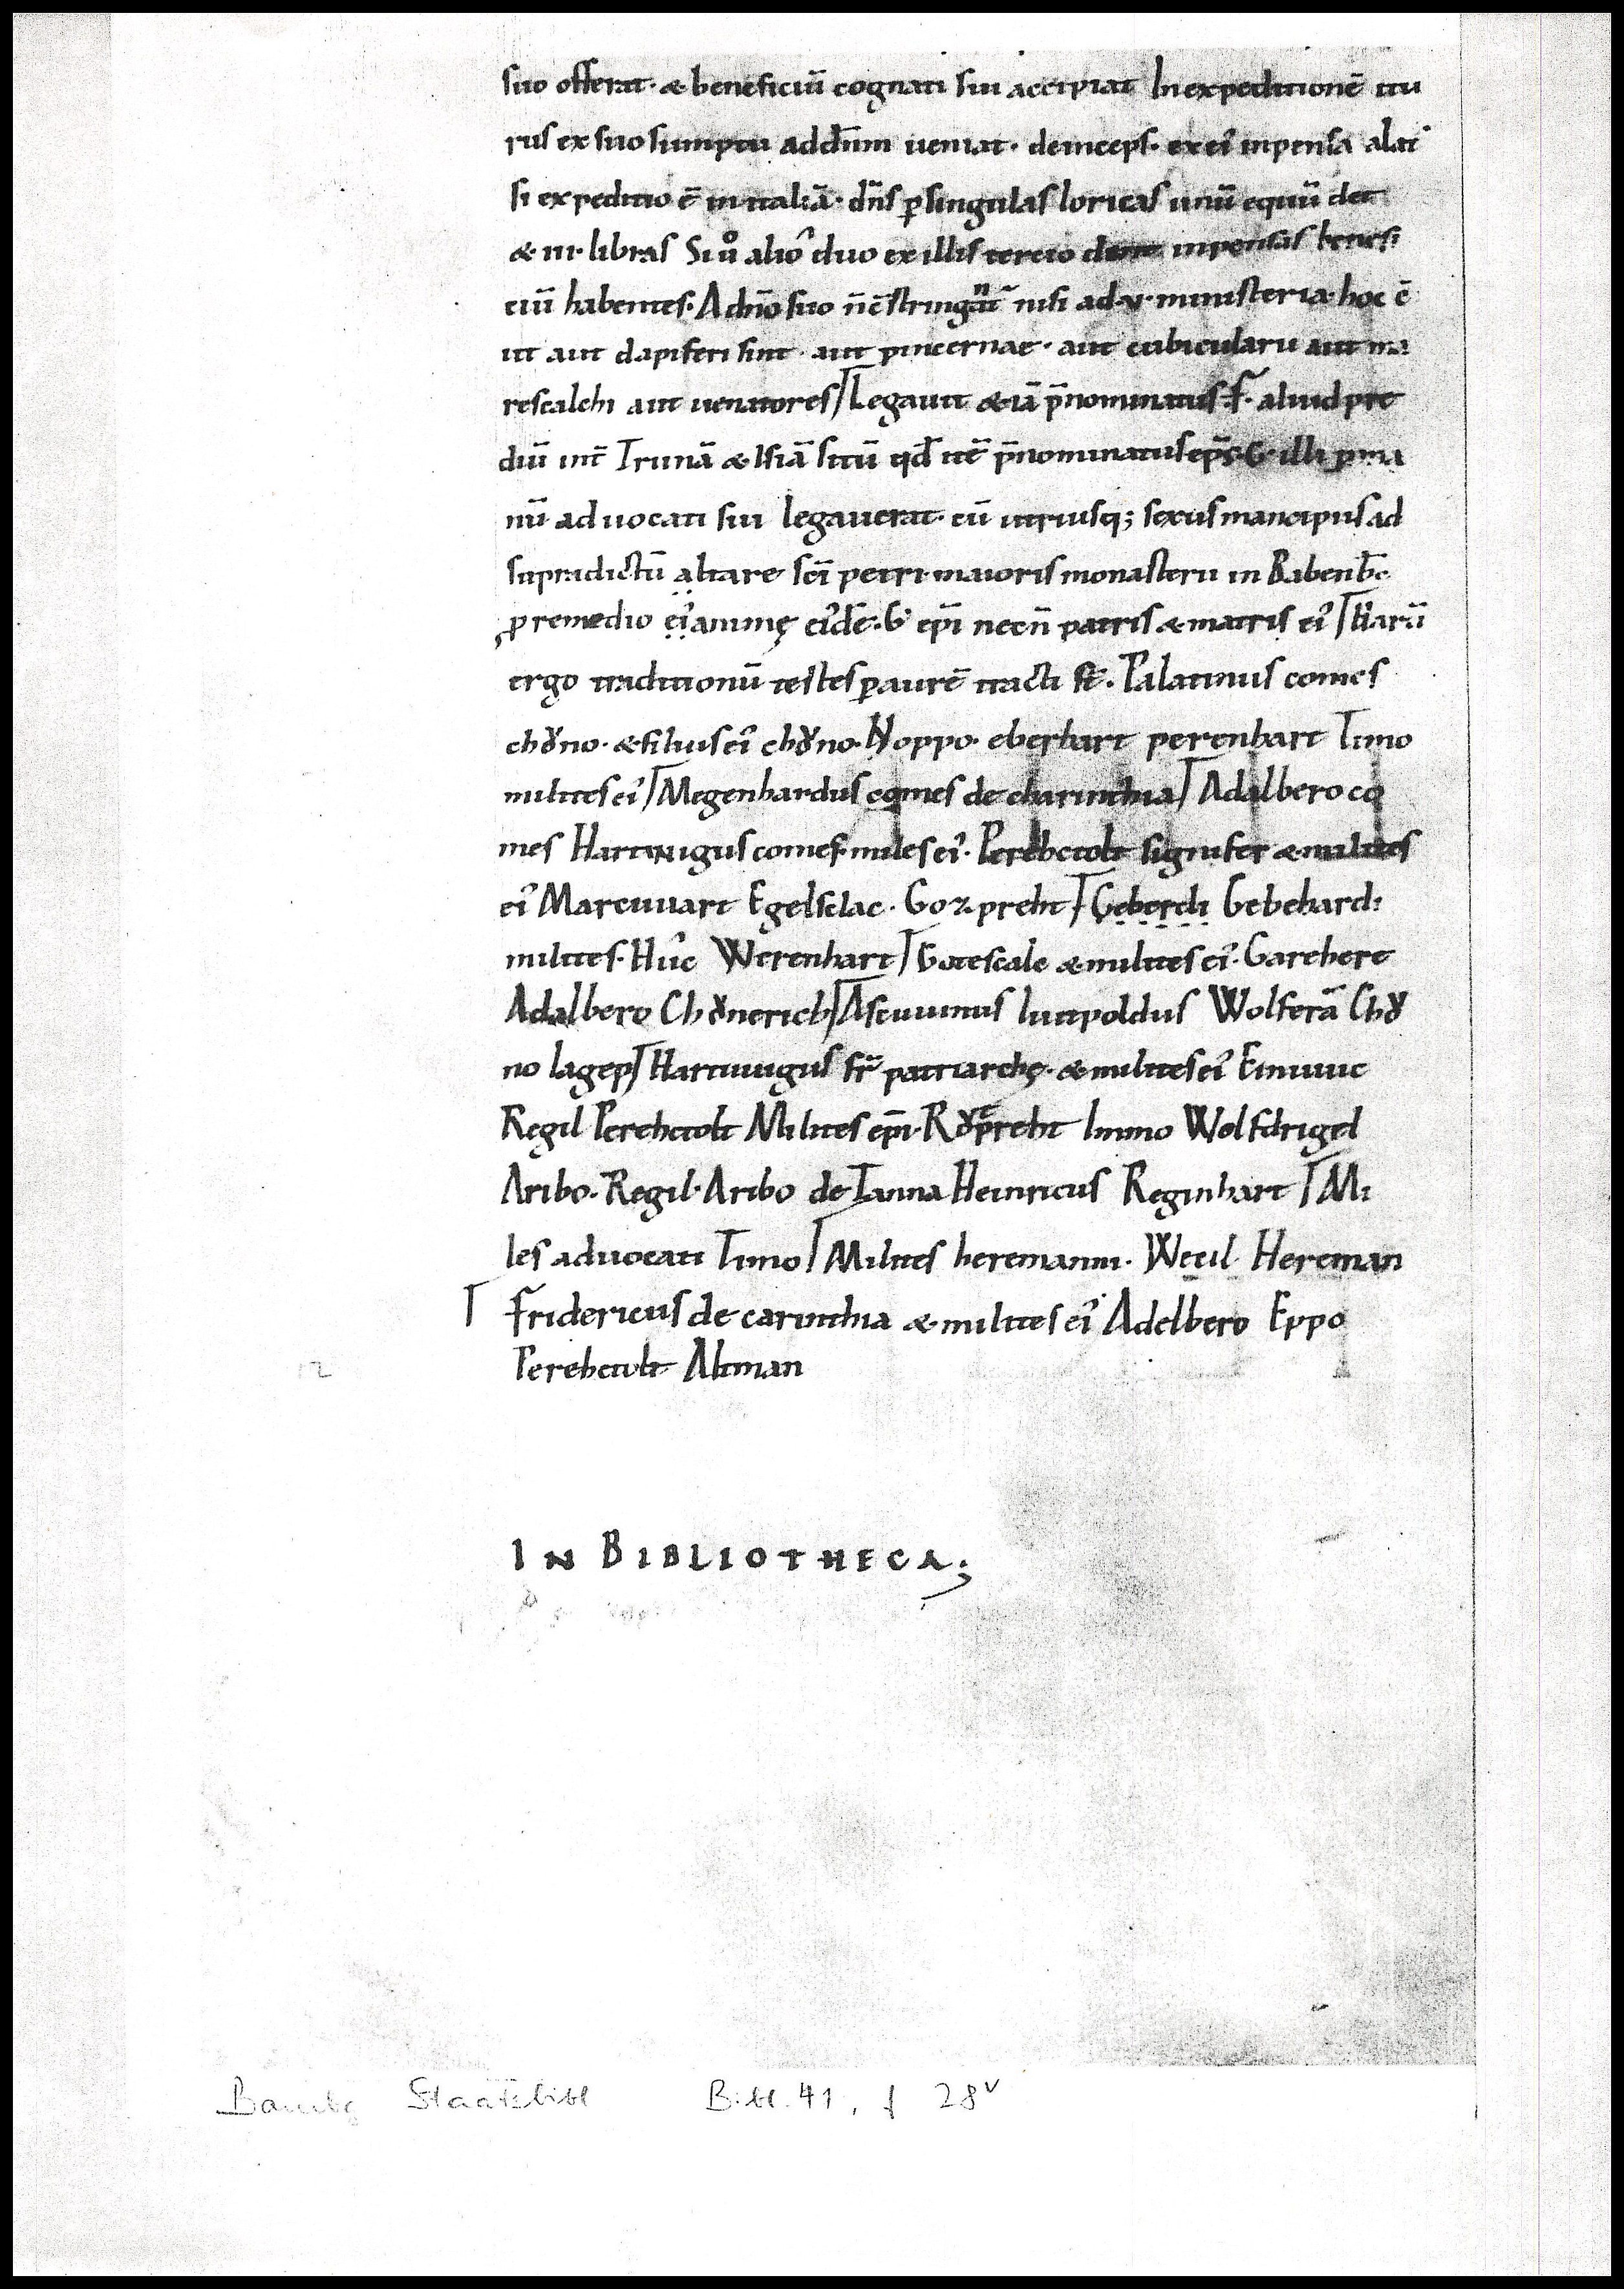 suo offerat· & beneficiū cognati sui accipiat In expeditionē itu
rus ex suo sumptu ad dn̄m ueniat· deinceps· ex ei᾿ inpensa alat᾿
si expeditio ē in italiā· dn̄s ꝑ singulas loricas unū equū det
& III· libras Si uͦ alio᾿ duo ex illis tercio dent inpensas benefi
ciū habentes· A dn̄o suo n̄ c̄stringant᾿ nisi ad·v·ministeria·hoc ē
ut aut dapiferi sint· aut pincernae· aut cubicularii aut ma
rescalchi aut uenatores⌈Legauit &iā p̄nominatus·F· aliud pre
diū int̄ Trunā & Isiā sitū qd̄ itē p̄nominatus ep̄s·G·illi ꝑ ma
nū aduocati sui legauerat· cū utriusq; sexus mancipiis ad
supradictū altare sc̄i petri·maioris monasterii in Babenb̄c
ꝓ remedio ei᾿ animę ei᾿dē·G᾿ ep̄i necn̄ patris & matris ei᾿⌈Harū
ergo traditionū testes ꝑ aurē tracti st̄· Palatinus comes
chꝍno· & filius ei᾿ chꝍno· Noppo· eberhart perenhart Timo
milites ei᾿⌈Megenhardus comes de charinthia⌈Adalbero co
mes Hartwigus comes·miles ei᾿· Perehctolt signifer & milites
ei᾿ Marcuuart Egelsclac· Gozpreht⌈Geberdi Gebehardi
milites· Hûc Werenhart⌈Gotescalc & milites ei᾿· Garehere
Adalbero Chꝍnerich⌈Ascuuinus luitpoldus Wolferā Chꝍ
no lagep⌈Hartuuigus fr̄ patriarchę· & milites ei᾿ Einuuic
Regil Perehctolt Milites ep̄i· Rꝍtpreht Immo Wolfdrigel
Aribo· Regil· Aribo de Tanna Heinricus Reginhart⌈Mi
les aduocati Timo⌈Milites heremanni· Wecil Hereman
⌈Fridericus de carinthia & milites ei᾿ Adelbero Eppo
Perehctolt Altman
IN BIBLIOTHECA;
12
Bambg Staatsbibl Bibl. 41, f 28v